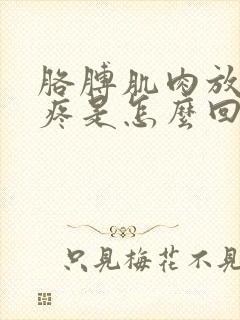 胳膊肌肉放
疼是怎麼回
只見梅花不見